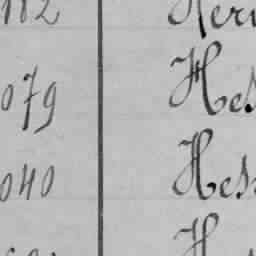 182 Her
079 Hes
040 Hes